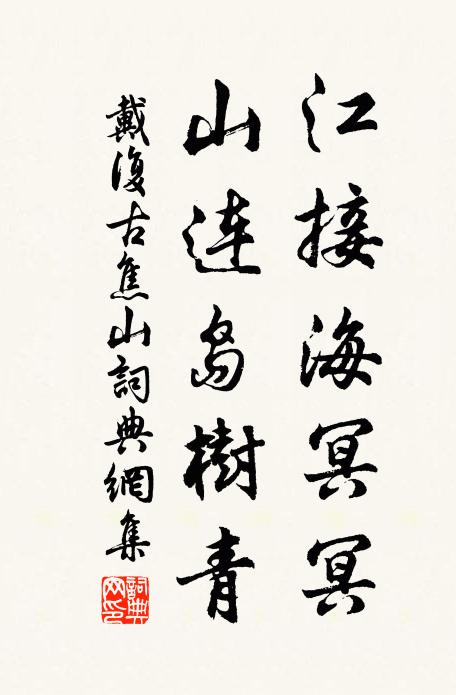 江接海冥冥
山连岛樹青
戴復古焦山詞典網集
詞典网印